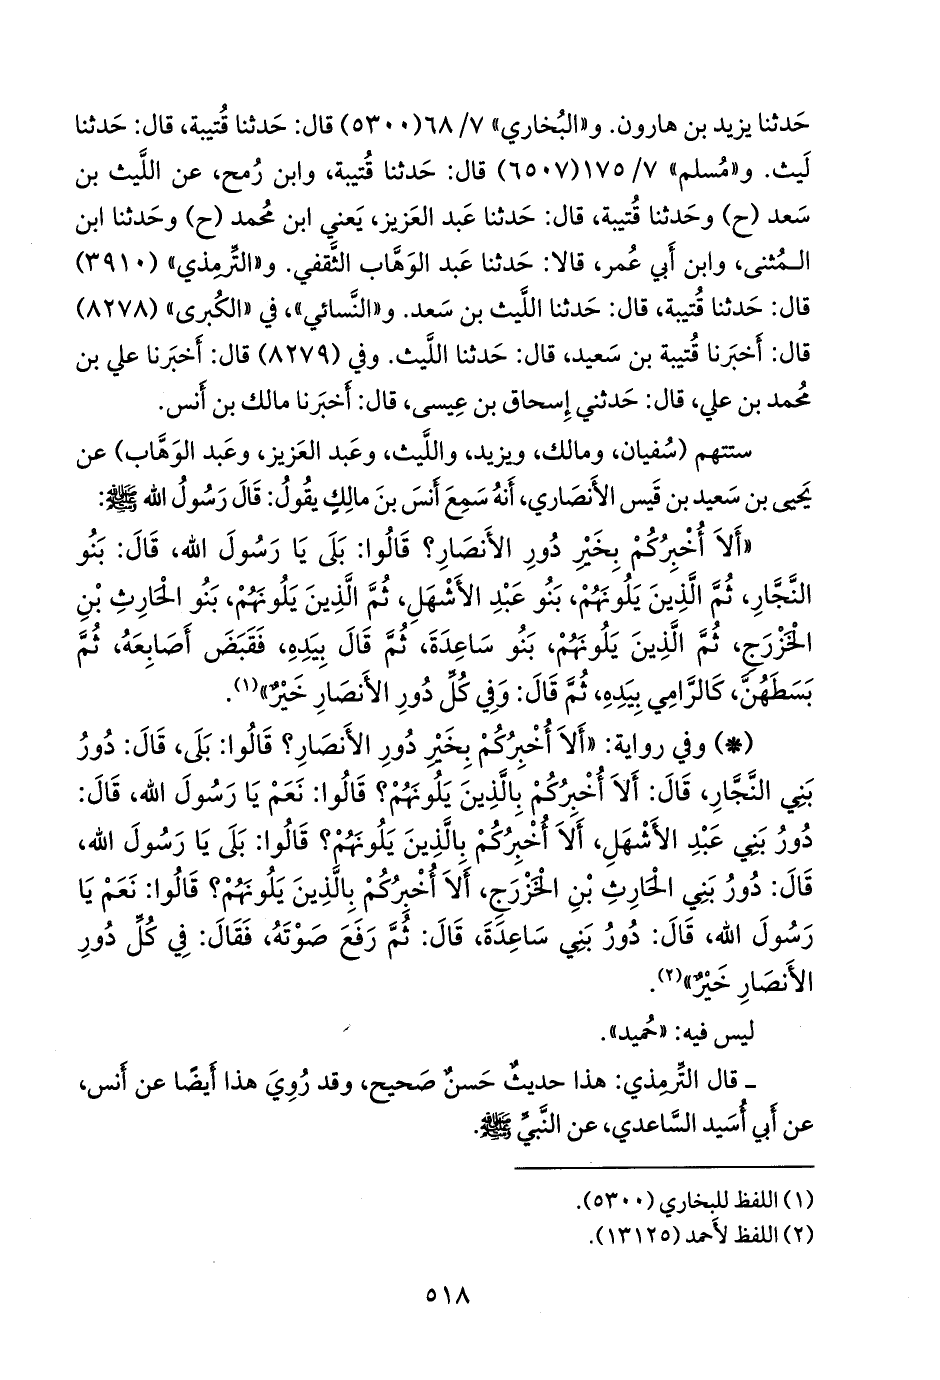 حَدثنا يزيد بن هارون. و«البُخاري» ٧/ ٦٨(٥٣٠٠) قال: حَدثنا قُتيبة، قال: حَدثنا
لَيث. و«مُسلم» ٧/ ١٧٥(٦٥٠٧) قال: حَدثنا قُتيبة، وابن رُمح، عن اللَّيث بن
سَعد (ح) وحَدثنا قُتيبة، قال: حَدثنا عَبد العَزيز، يَعني ابن مُحمد (ح) وحَدثنا ابن
الـمُثنى، وابن أَبي عُمر، قالا: حَدثنا عَبد الوَهَّاب الثَّقفي. و«التِّرمِذي» (٣٩١٠)
قال: حَدثنا قُتيبة، قال: حَدثنا اللَّيث بن سَعد. و«النَّسائي»، في «الكُبرى» (٨٢٧٨)
قال: أَخبَرنا قُتيبة بن سَعيد، قال: حَدثنا اللَّيث. وفي (٨٢٧٩) قال: أَخبَرنا علي بن
مُحمد بن علي، قال: حَدثني إِسحاق بن عِيسى، قال: أَخبَرنا مالك بن أَنس.
ستتهم (سُفيان، ومالك، ويزيد، واللَّيث، وعَبد العَزيز، وعَبد الوَهَّاب) عن
يَحيى بن سَعيد بن قَيس الأَنصاري، أَنهُ سَمِعَ أَنسَ بنَ مالِكٍ يقُولُ: قَالَ رَسُولُ الله ﷺ:
«أَلاَ أُخْبِرُكُمْ بِخَيْرِ دُورِ الأَنصَارِ؟ قَالُوا: بَلَى يَا رَسُولَ الله، قَالَ: بَنُو
النَّجَّارِ، ثُمَّ الَّذِينَ يَلُونَهُمْ، بَنُو عَبْدِ الأَشْهَلِ، ثُمَّ الَّذِينَ يَلُونَهُمْ، بَنُو الْحَارِثِ بْنِ
الْخَزْرَجِ، ثُمَّ الَّذِينَ يَلُونَهُمْ، بَنُو سَاعِدَةَ، ثُمَّ قَالَ بِيَدِهِ، فَقَبَضَ أَصَابِعَهُ، ثُمَّ
بَسَطَهُنَّ، كَالرَّامِي بِيَدِهِ، ثُمَّ قَالَ: وَفِي كُلِّ دُورِ الأَنصَارِ خَيْرٌ»(١).
(*) وفي رواية: «أَلاَ أُخْبِرُكُمْ بِخَيْرِ دُورِ الأَنصَارِ؟ قَالُوا: بَلَى، قَالَ: دُورُ
بَنِي النَّجَّارِ، قَالَ: أَلاَ أُخْبِرُكُمْ بِالَّذِينَ يَلُونَهُمْ؟ قَالُوا: نَعَمْ يَا رَسُولَ الله، قَالَ:
دُورُ بَنِي عَبْدِ الأَشْهَلِ، أَلاَ أُخْبِرُكُمْ بِالَّذِينَ يَلُونَهُمْ؟ قَالُوا: بَلَى يَا رَسُولَ الله،
قَالَ: دُورُ بَنِي الْحَارِثِ بْنِ الْخَزْرَجِ، أَلاَ أُخْبِرُكُمْ بِالَّذِينَ يَلُونَهُمْ؟ قَالُوا: نَعَمْ يَا
رَسُولَ الله، قَالَ: دُورُ بَنِي سَاعِدَةَ، قَالَ: ثُمَّ رَفَعَ صَوْتَهُ، فَقَالَ: فِي كُلِّ دُورِ
الأَنصَارِ خَيْرٌ»(٢).
ليس فيه: «حُميد».
ـ قال التِّرمِذي: هذا حديثٌ حَسنٌ صَحيح، وقد رُوِيَ هذا أَيضًا عن أَنس،
عن أَبي أُسَيد السَّاعدي، عن النَّبيِّ ﷺ.
(١) اللفظ للبخاري (٥٣٠٠).
(٢) اللفظ لأَحمد (١٣١٢٥).
٥١٨